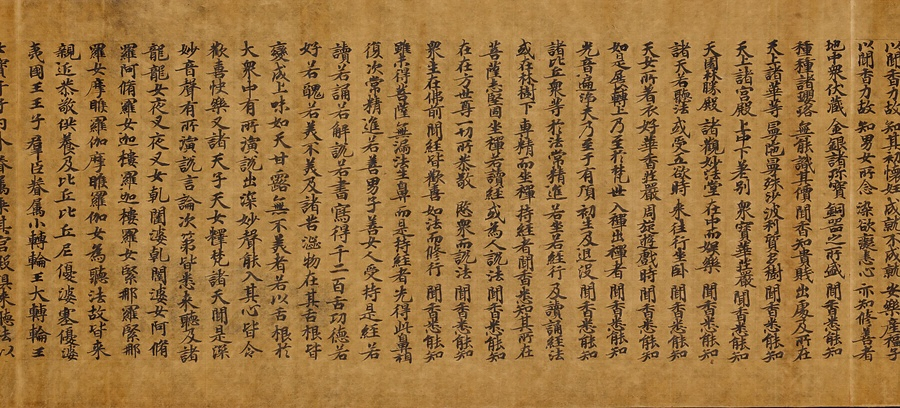 以聞香力故 知其初懷妊 成就不成就 安樂產福子
以聞香力故 知男女所念 染欲癡恚心 亦知修善者
地中衆伏藏 金銀諸珍寶 銅器之所盛 聞香悉能知
種種諸瓔珞 無能識其價 聞香知貴賤 出處及所在
天上諸華等 曼陁曼殊沙 波利質多樹 聞香悉能知
天上諸宮殿 上中下差別 衆寶華莊嚴 聞香悉能知
天園林勝殿 諸觀妙法堂 在中而娛樂 聞香悉能知
諸天若聽法 或受五欲時 來往行坐臥 聞香悉能知
天女所著衣 好華香莊嚴 周旋遊戲時 聞香悉能知
如是展轉上 乃至於梵世 入禪出禪者 聞香悉能知
光音遍淨天 乃至于有頂 初生及退沒 聞香悉能知
諸比丘衆等 於法常精進 若坐若經行 及讀誦經法
或在林樹下 專精而坐禪 持經者聞香 悉知其所在
菩薩志堅固 坐禪若讀經 或為人說法 聞香悉能知
在在方世尊 一切所恭敬 愍衆而說法 聞香悉能知
衆生在佛前 聞經皆歡喜 如法而修行 聞香悉能知
雖未得菩薩 無漏法生鼻 而是持經者 先得此鼻相
復次常精進若善男子善女人受持是經若
讀若誦若解說若書寫得千二百舌功德若
好若醜若美不美及諸苦澁物在其舌根皆
變成上味如天甘露無不美者若以舌根於
大衆中有所演說出深妙聲能入其心皆令
歡喜快樂又諸天子天女釋梵諸天聞是深
妙音聲有所演說言論次第皆悉來聽及諸
龍龍女夜叉夜叉女乹闥婆乹闥婆女阿脩
羅阿脩羅女迦樓羅迦樓羅女緊那羅緊那
羅女摩睺羅伽摩睺羅伽女為聽法故皆來
親近恭敬供養及比丘比丘尼優婆塞優婆
夷國王王子群臣眷屬小轉輪王大轉輪王